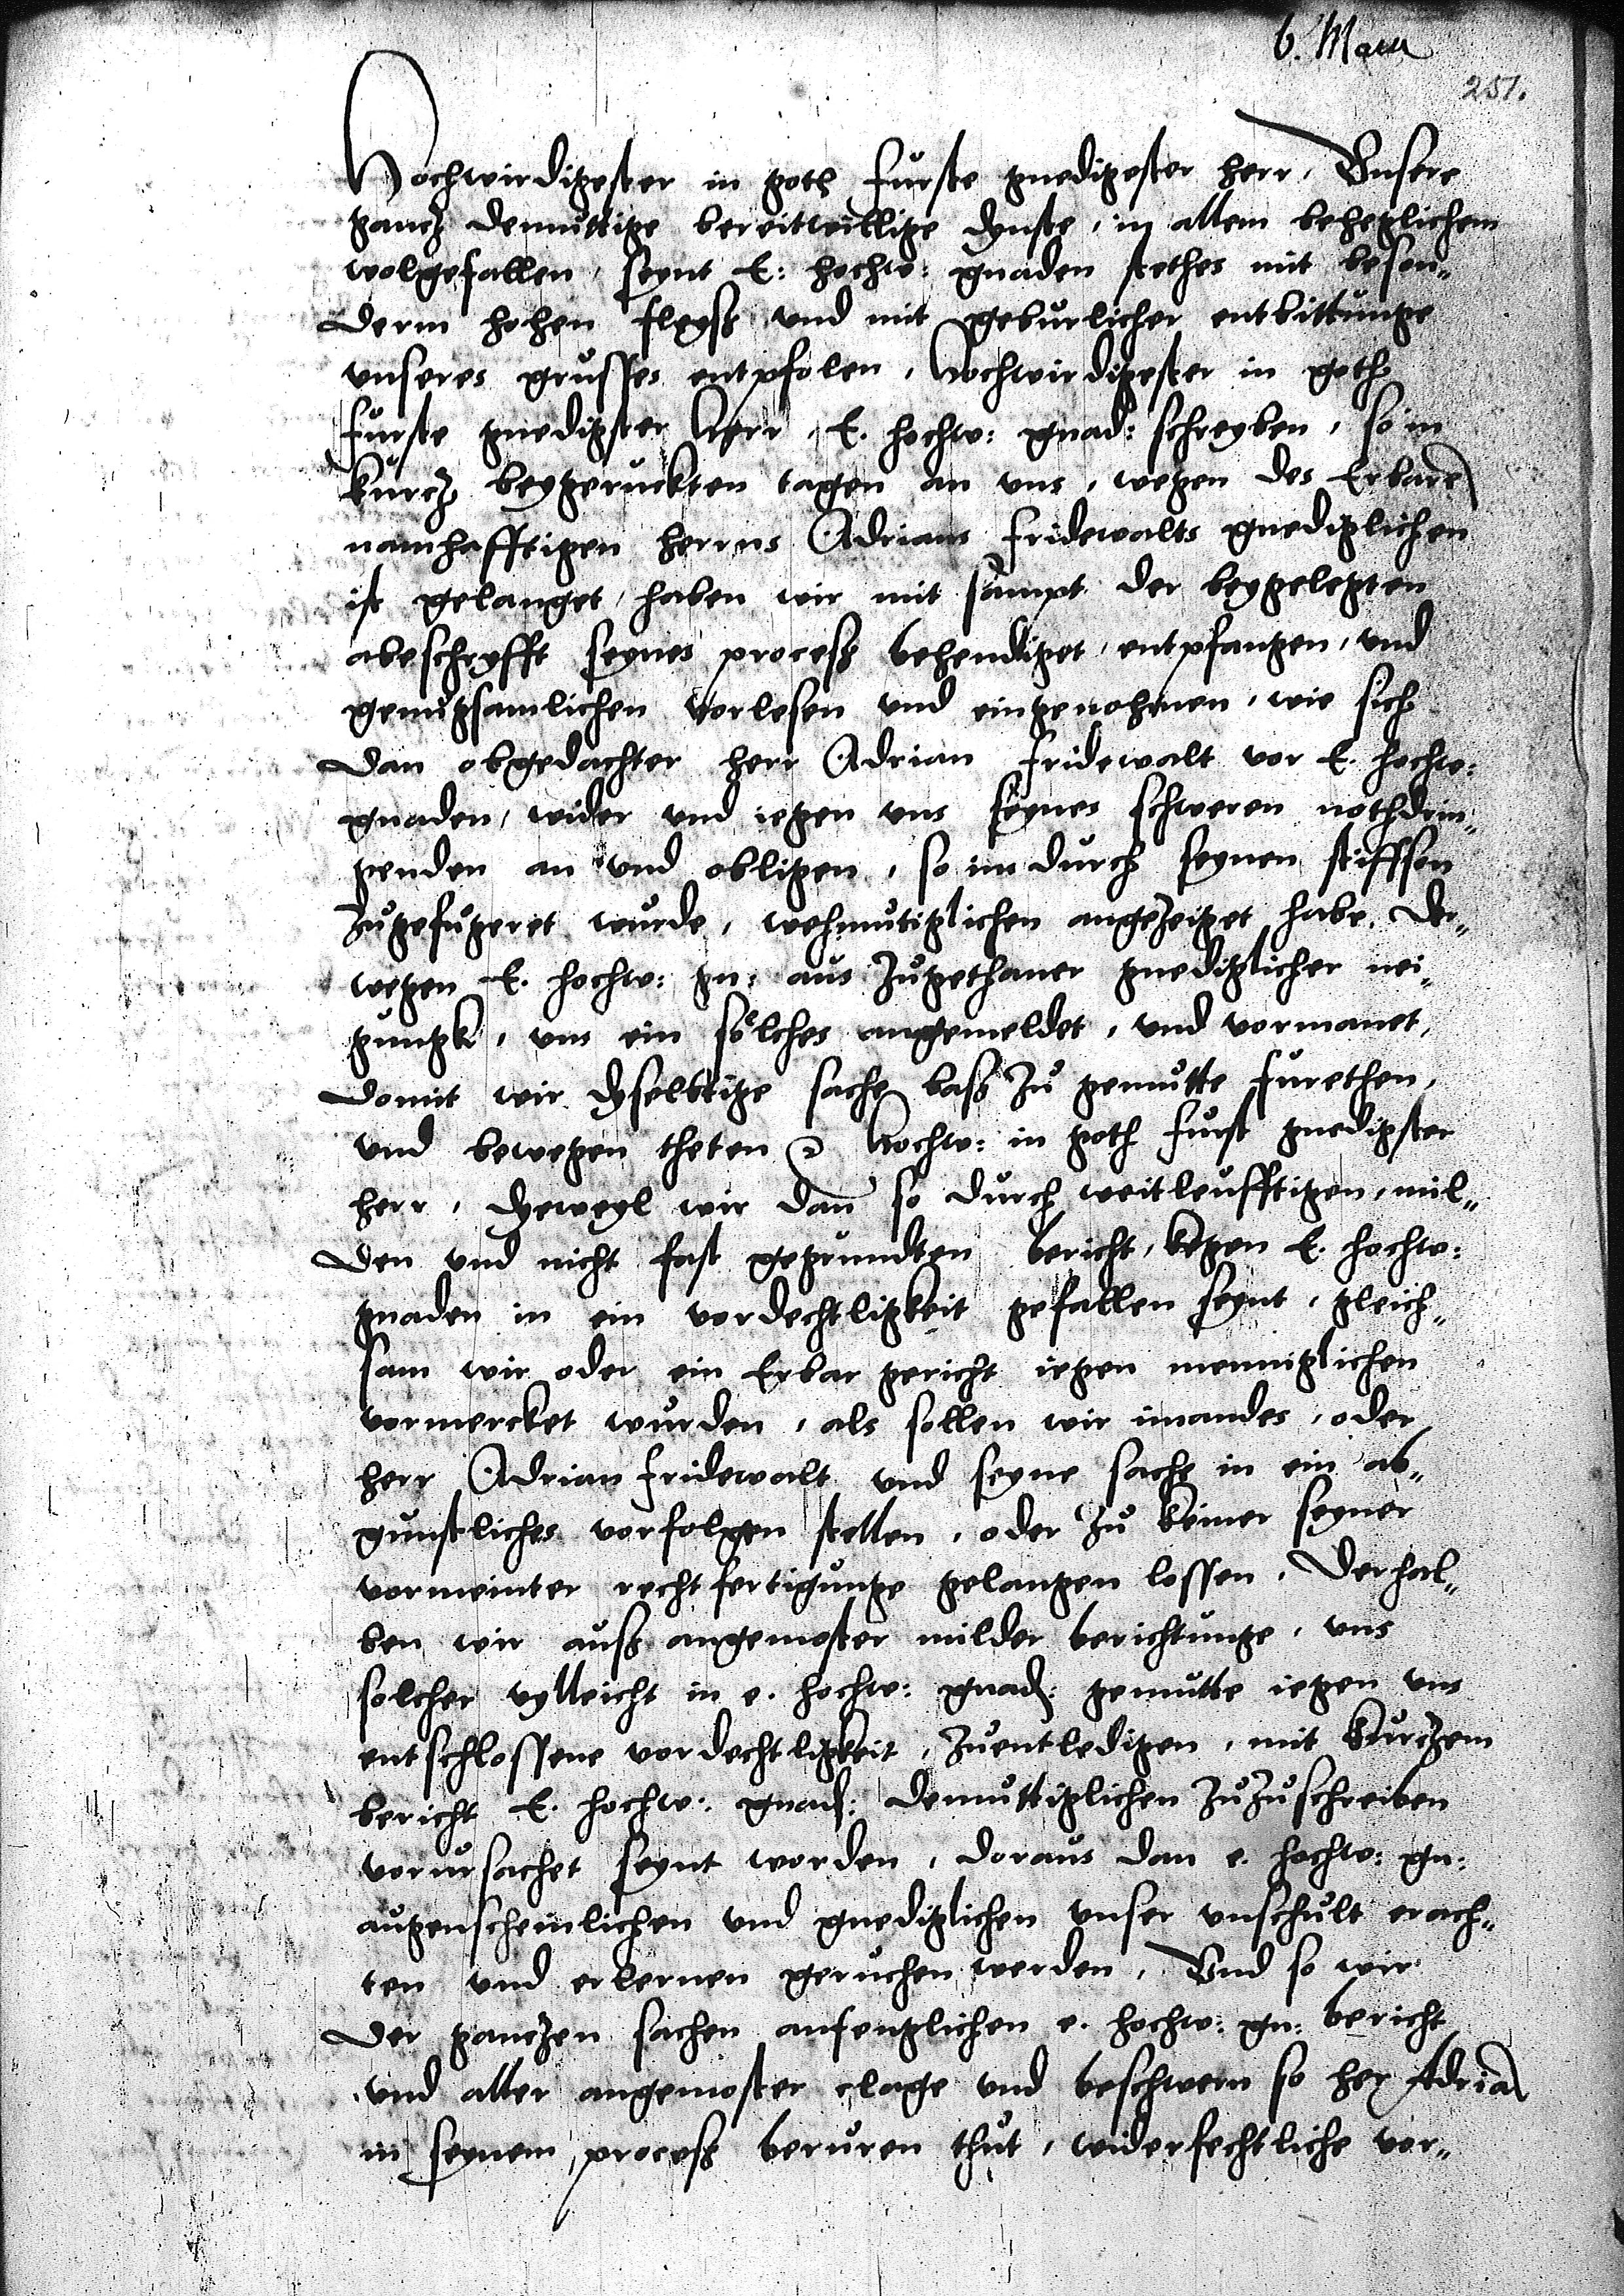 6. Maii
251.
Hochwirdigester in goth furste gnedigester herr, Unsere
gancz demuttige bereitwillige dynste, in allem beheglichem
wolgefallen, seynt E: hochw: gnaden stethes mit beson„
derm hohen fleysz und mit geburlicher entbittunge
unseres grusses entpfolen, Hochwirdigester in goth
furste gnedigster herr, E. hochw: gnad: schreyben, so in
kurcz beygeruckten tagen an uns, wegen des Erbarn
namhafftigen herrns Adrians fridewalts gnediglichen
ist gelanget, haben wir mit sampt der beygelegten
abeschryfft seynes procesz behendiget, entpfangen, und
genugsamlichen vorlesen und eingenohmen, wie sich
dan obgedachter herr Adrian fridewalt vor E. hochw:
gnaden, wider und iegen uns seynes schweren nothdrin„
genden an und obligen, so im durch seynen stiffson
zugefugeret wurde, wehmutiglichen angezeiget habe. Der„
wegen E. hochw: gn: aus zugethaner gnediglicher nei„
gungk, uns ein solches angemeldet, und vormanet,
domit wir dyselbtige sache basz zu gemutte furethen,
und bewegen theten Hochw: in goth furst gnedigster
herr, dyeweyl wir dan so durch weitleufftigen, mil„
den und nicht fast gegrundten bericht, kegen E. hochw:
gnaden in ein vordechtligkeit gefallen seynt, gleich„
sam wir oder ein Erbar gericht iegen menniglichen
vormercket wurden, als sollen wir imandes, oder
herr Adrian fridewalt und seyne sache in ein ab„
gunstliches vorfolgen stellen, oder zu keiner seyner
vormeinter rechtfertigunge gelangen lossen. Derhal„
ben wir ausz angemoster milder berichtunge, uns
solcher vylleicht in e. hochw: gnad: gemutte iegen uns
entschlossene vordechtligkeit, zuentledigen, mit kurczem
bericht E. hochw: gnad: demuttiglichen zuzuschreiben
vorursachet seynt worden, doraus dan e. hochw: gn:
augenscheinlichen und gnediglichen unser unschult erach„
ten und erkennen geruchen werden. Und so wir
der ganczen sachen anfenglichen e. hochw: gn: bericht
und aller angemoster clage und beschwern so her Adrian
in seynem procesz beruren thut, widerfechtliche vor„